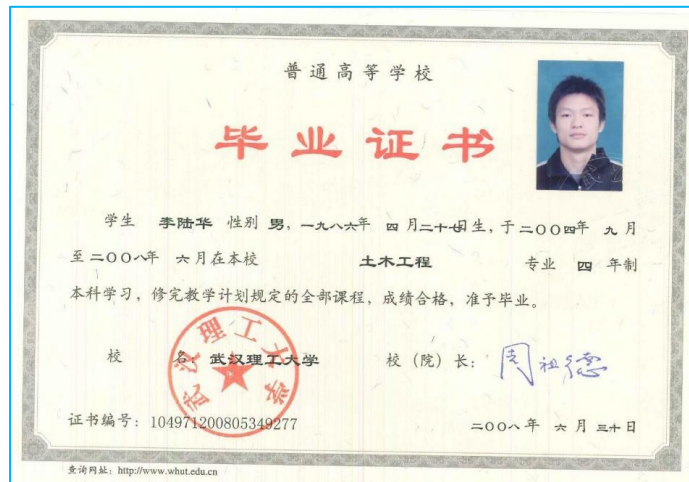 普通高等学校
毕业证书
学生 李陆华 性别 男，一九八六年 四 月二十七日生，于二〇〇四年 九 月
至二〇〇八年 六 月在本校 土木工程 专业 四 年制
本科学习，修完教学计划规定的全部课程，成绩合格，准予毕业。
校 名：武汉理工大学 校（院）长：周祖德
武汉理工大学
证书编号：104971200805349277 二〇〇八年 六 月 三十日
查询网址：http://www.whut.edu.cn